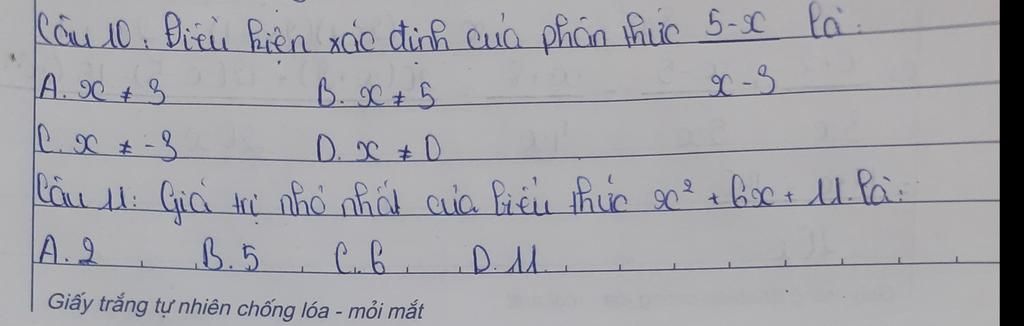 Câu 10. Điều kiện xác định của phân thức 5-x là:
x-3
A. x ≠ 3 B. x ≠ 5
C. x ≠ -3 D. x ≠ 0
Câu 11: Giá trị nhỏ nhất của biểu thức x² + 6x + 11. là:
A. 2 B. 5 C. 6 D. 11
Giấy trắng tự nhiên chống lóa - mỏi mắt